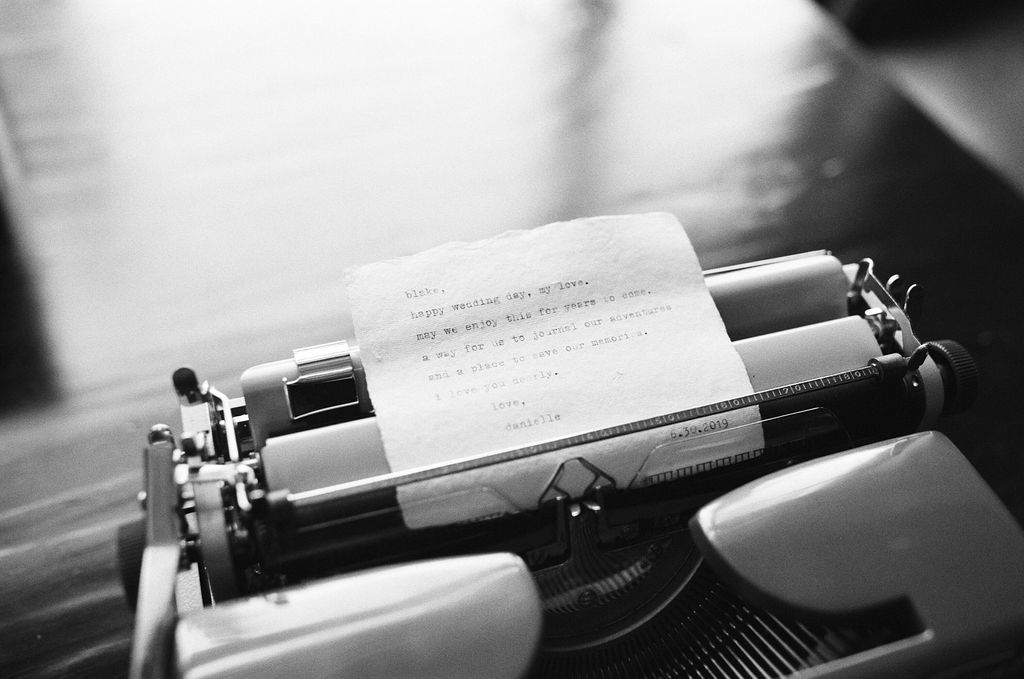 blake,
happy wedding day, my love.
may we enjoy this for years to come,
a way for us to journal our adventures
and a place to save our memories.
i love you dearly.
love,
danielle
6.30.2019